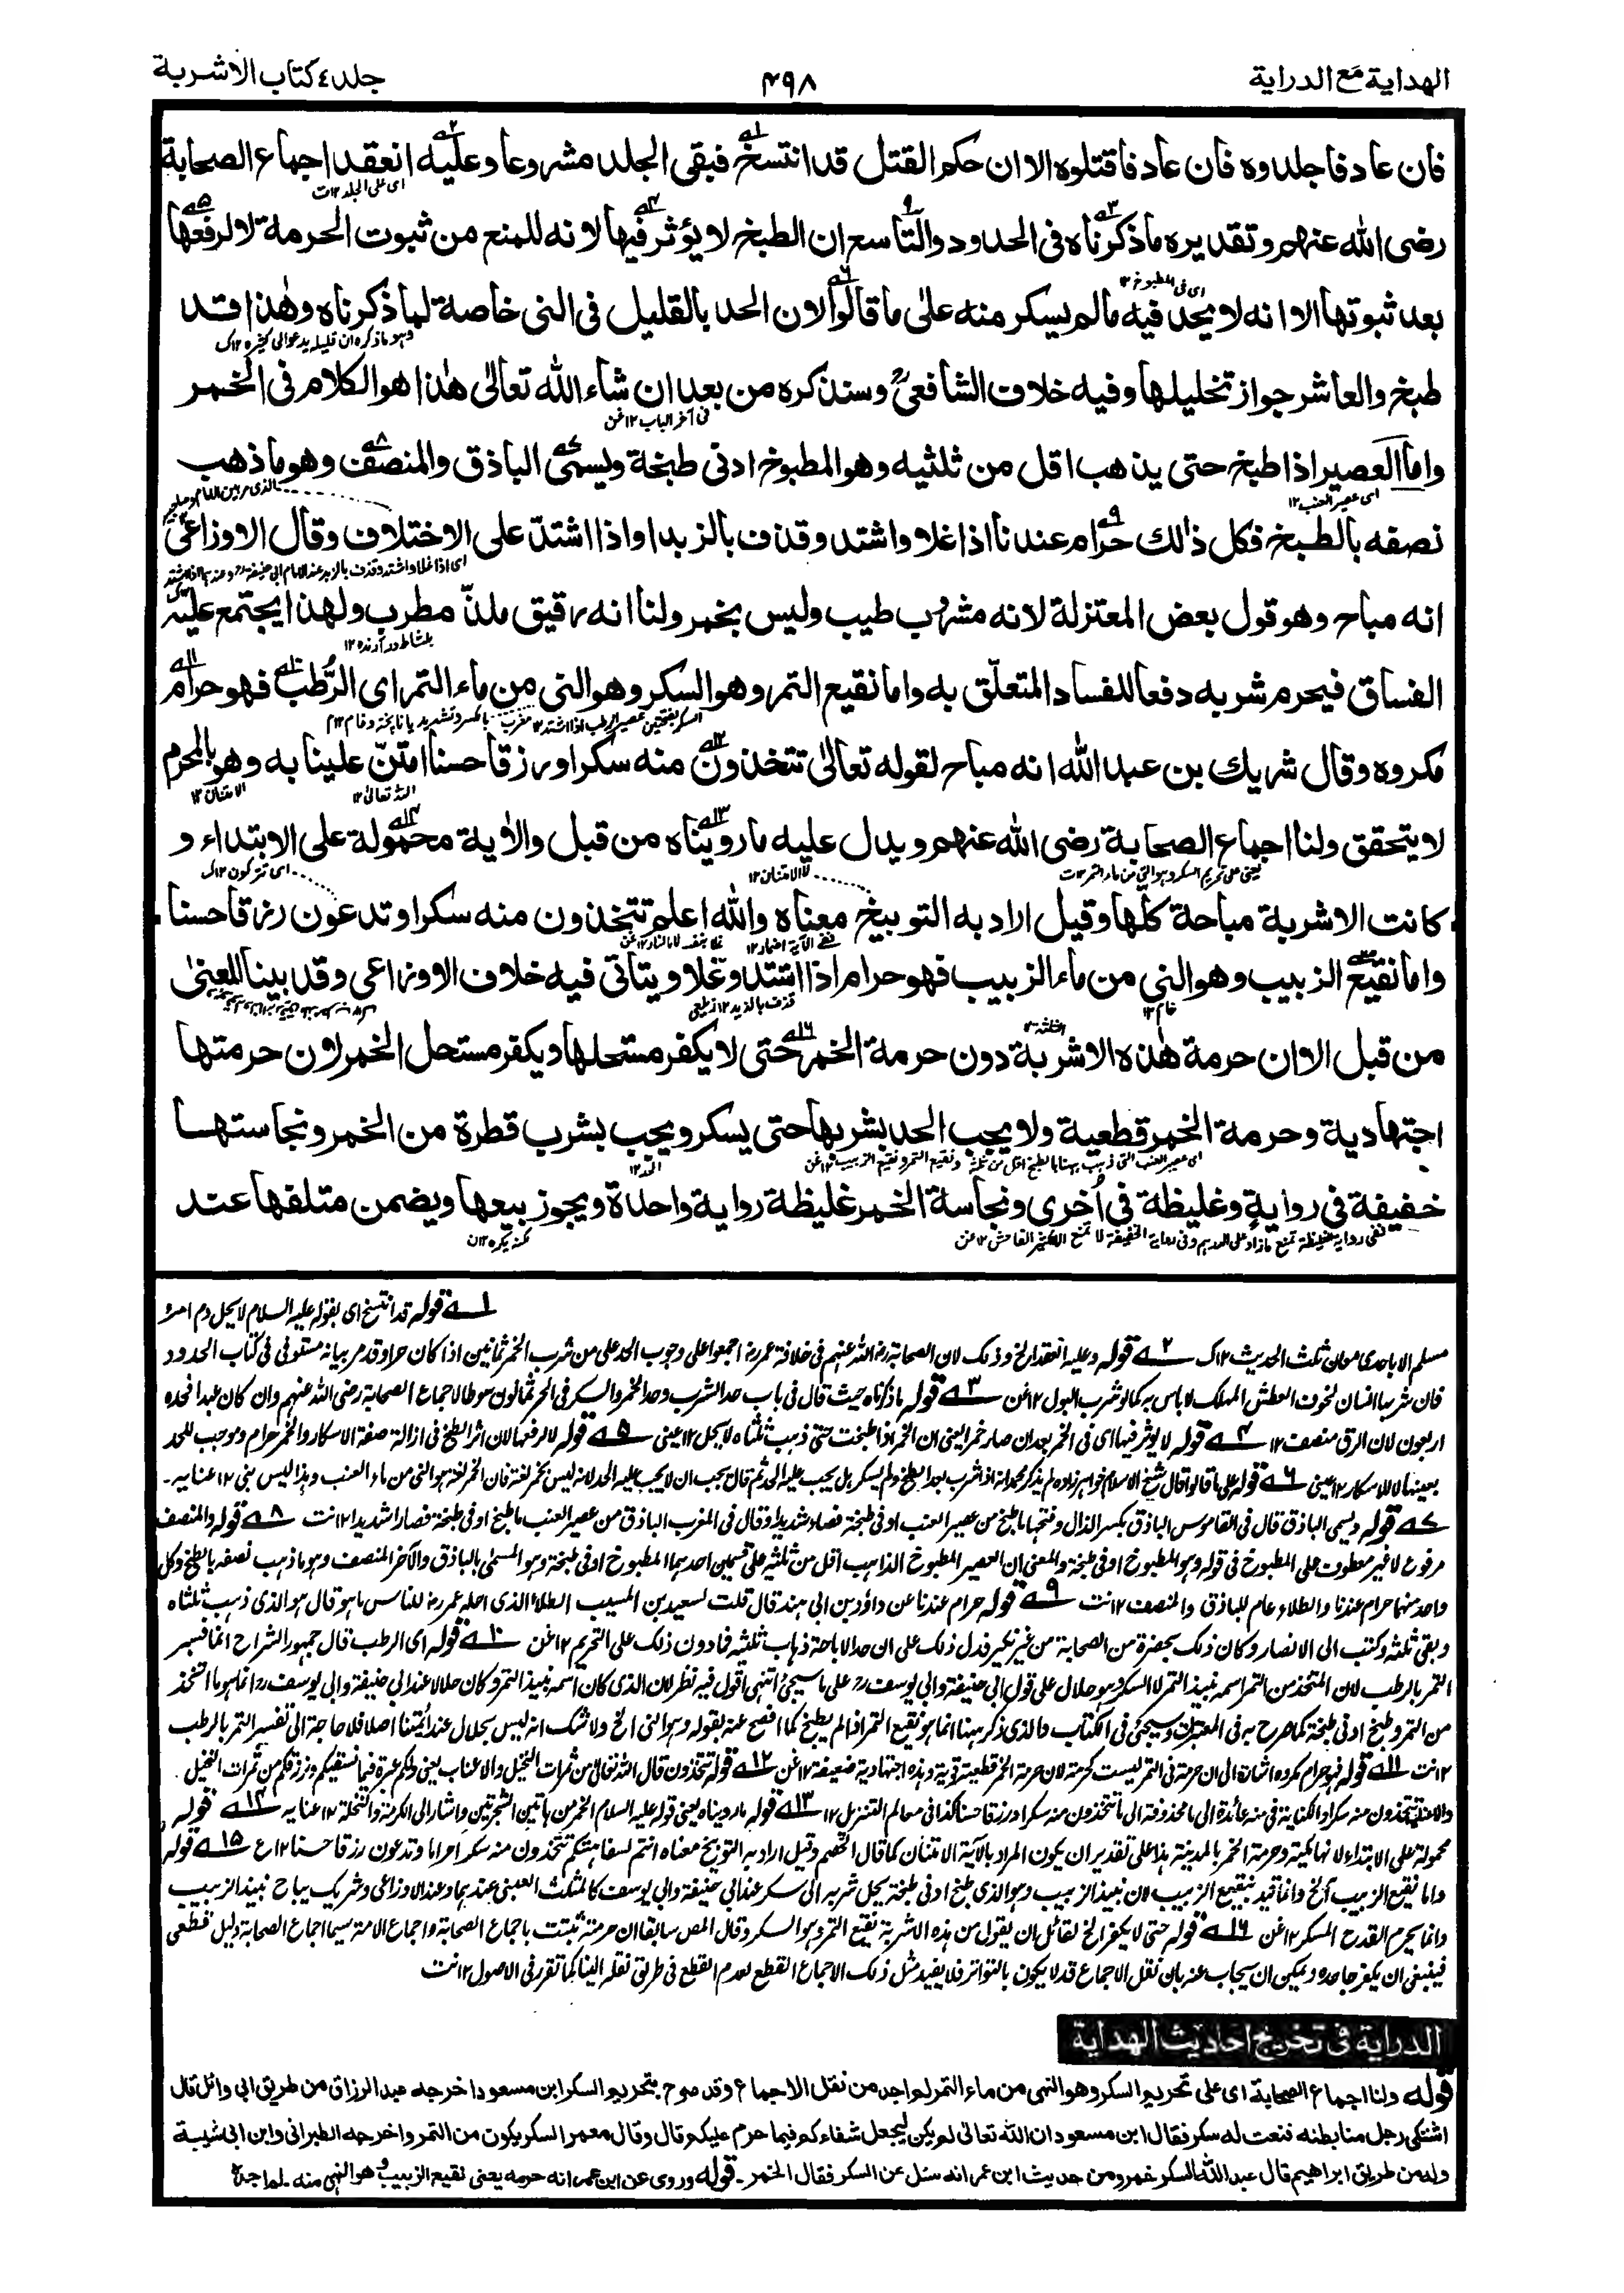 الهداية مع الدراية
۴۹۸
جلد ٤ كتاب الاشربة
فان عاد فاجلدوه فان عاد فاقتلوه الا ان حكم القتل قد انتسخ فبقى الجلد مشروعا وعليه انعقد اجماع الصحابة
رضى الله عنهم وتقديره ما ذكرناه فى الحدود والتاسع ان الطبخ لا يؤثر فيها لانه للمنع من ثبوت الحرمة لا لرفعها
بعد ثبوتها الا انه لا يحد فيه مالم يسكر منه على ما قالوا لان الحد بالقليل فى النى خاصة لما ذكرناه وهذا قد
طبخ والعاشر جواز تخليلها وفيه خلاف الشافعى وسنذكره من بعد ان شاء الله تعالى هذا هو الكلام فى الخمر
واما العصير اذا طبخ حتى يذهب اقل من ثلثيه وهو المطبوخ ادنى طبخة ويسمى الباذق والمنصف وهو ما ذهب
نصفه بالطبخ فكل ذالك حرام عندنا اذا غلا واشتد وقذف بالزبد او اذا اشتد على الاختلاف وقال الاوزاعى
انه مباح وهو قول بعض المعتزلة لانه مشروب طيب وليس بخمر ولنا انه رقيق ملذ مطرب ولهذا يجتمع عليه
الفساق فيحرم شربه دفعا للفساد المتعلق به واما نقيع التمر وهو السكر وهو النى من ماء التمر اى الرطب فهو حرام
مكروه وقال شريك بن عبد الله انه مباح لقوله تعالى تتخذون منه سكرا ورزقا حسنا امتن علينا به وهو بالمحرم
لا يتحقق ولنا اجماع الصحابة رضى الله عنهم ويدل عليه ما رويناه من قبل والاية محمولة على الابتداء و
كانت الاشربة مباحة كلها وقيل اراد به التوبيخ معناه والله اعلم تتخذون منه سكرا وتدعون رزقا حسنا
واما نقيع الزبيب وهو النى من ماء الزبيب فهو حرام اذا اشتد وغلا ويتأتى فيه خلاف الاوزاعى وقد بينا المعنى
من قبل الا ان حرمة هذه الاشربة دون حرمة الخمر حتى لا يكفر مستحلها ويكفر مستحل الخمر لان حرمتها
اجتهادية وحرمة الخمر قطعية ولا يجب الحد بشربها حتى يسكر ويجب بشرب قطرة من الخمر ونجاستها
خفيفة فى رواية وغليظة فى اخرى ونجاسة الخمر غليظة رواية واحدة ويجوز بيعها ويضمن متلفها عند
١ قوله قد انتسخ اى بقوله عليه السلام لا يحل دم امرئ
مسلم الا باحدى معان ثلث الحديث ١٢ ك ٢ قوله وعليه انعقد الخ وذلك لان الصحابة رضى الله عنهم فى خلافة عمر رض اجمعوا على وجوب الحد على من شرب الخمر ثمانين اذا كان حرا وقد مر بيانه مستوفى فى كتاب الحدود
فان شربها انسان لخوف العطش المهلك لا باس به كما لو شرب البول ١٢ عن ٣ قوله ما ذكرناه حيث قال فى باب حد الشرب وحد الخمر والسكر فى الحر ثمانون سوطا لاجماع الصحابة رضى الله عنهم وان كان عبدا فحده
اربعون لان الرق منصف ١٢ ٤ قوله لا يؤثر فيها اى فى الخمر بعد ان صار خمرا يعنى ان الخمر اذا طبخت حتى ذهب ثلثاه لا يحل ١٢ عينى ٥ قوله لا لرفعها لان اثر الطبخ فى ازالة صفة الاسكار والخمر حرام وموجب للحد
بعينها لا للاسكار ١٢ عينى ٦ قوله على ما قالوا قال شيخ الاسلام خواهر زاده لم يذكر محمد انه اذا شرب بعد الطبخ ولم يسكر بل يجب عليه الحد ثم قال يجب ان لا يجب عليه الحد لانه ليس بخمر لغة فان الخمر لغة هو النى من ماء العنب وهذا ليس بنى ١٢ عنايه
٧ قوله ويسمى الباذق قال فى القاموس الباذق بكسر الذال وفتحها ما طبخ من عصير العنب ادنى طبخة فصار شديدا وقال فى المغرب الباذق من عصير العنب ما طبخ ادنى طبخة فصار شديدا ١٢ نت ٨ قوله والمنصف
مرفوع لا غير معطوف على المطبوخ فى قوله وهو المطبوخ ادنى طبخة والمعنى ان العصير المطبوخ الذاهب اقل من ثلثيه على قسمين احدهما المطبوخ ادنى طبخة وهو المسمى بالباذق والآخر المنصف وهو ما ذهب نصفه بالطبخ وكل
واحد منهما حرام عندنا والطلاء عام للباذق والمنصف ١٢ نت ٩ قوله حرام عندنا عن داؤد بن ابى هند قال قلت لسعيد بن المسيب الطلاء الذى احله عمر رض للناس ما هو قال هو الذى ذهب ثلثاه
وبقى ثلثه وكتب الى الانصار وكان ذلك بحضرة من الصحابة من غير نكير فدل ذلك على ان حد الاباحة ذهاب ثلثيه فما دون ذلك على التحريم ١٢ عن ١٠ قوله اى الرطب قال جمهور الشراح انما فسر
التمر بالرطب لان المتخذ من التمر اسمه نبيذ التمر لا السكر وهو حلال على قول ابى حنيفة وابى يوسف رح على ما سيجئ انتهى اقول فيه نظر لان الذى كان اسمه نبيذ التمر وكان حلالا عند ابى حنيفة وابى يوسف رح انما هو ما اتخذ
من التمر وطبخ ادنى طبخة كما صرح به فى المعتبرات وسيجئ فى الكتاب والذى ذكر ههنا انما هو نقيع التمر اذا لم يطبخ كما افصح عنه بقوله وهو النى الخ ولا شك انه ليس بحلال عند ائمتنا اصلا فلا حاجة الى تفسير التمر بالرطب
١٢ نت ١١ قوله فهو حرام مكروه اشارة الى ان حرمته فى التمر ليست كحرمته لان حرمة الخمر قطعية قوية وهذه اجتهادية ضعيفة ١٢ عن ١٢ قوله تتخذون قال الله تعالى من ثمرات النخيل والاعناب يعنى ولكم عبرة فيما نسقيكم ونرزقكم من ثمرات النخيل
والاعناب تتخذون منه سكرا والكناية فى منه عائدة الى ما محذوفة اى ما تتخذون منه سكرا ورزقا حسنا كذا فى معالم التنزيل ١٢ ١٣ قوله ما رويناه يعنى قوله عليه السلام الخمر من هاتين الشجرتين واشار الى الكرمة والنخلة ١٢ عنايه ١٤ قوله
محمولة على الابتداء لانها مكية وحرمة الخمر بالمدينة هذا على تقدير ان يكون المراد بالآية الامتنان كما قال الخصم وقيل اراد به التوبيخ معناه انتم لسفاهتكم تتخذون منه سكرا حراما وتدعون رزقا حسنا ١٢ ع ١٥ قوله
واما نقيع الزبيب الخ وانما قيد بنقيع الزبيب لان نبيذ الزبيب وهو الذى طبخ ادنى طبخة يحل شربه الى سكر عند ابى حنيفة وابى يوسف كالمثلث العنبى عندهما وعند الاوزاعى وشريك يباح نبيذ الزبيب
وانما يحرم القدح المسكر ١٢ عن ١٦ قوله حتى لا يكفر الخ لقائل ان يقول من هذه الاشربة نقيع التمر وهو السكر وقال المص سابقا ان حرمته ثبتت باجماع الصحابة واجماع الامة سيما اجماع الصحابة دليل قطعى
فينبغى ان يكفر جاحده ويمكن ان يجاب عنه بان نقل الاجماع قد لا يكون بالتواتر فلا يفيد مثل ذلك الاجماع القطع لعدم القطع فى طريق نقله الينا كما تقرر فى الاصول ١٢ نت
الدراية فى تخريج احاديث الهداية
قوله ولنا اجماع الصحابة اى على تحريم السكر وهو النى من ماء التمر لم اجد من نقل الاجماع وقد صرح بتحريم السكر ابن مسعود اخرجه عبد الرزاق من طريق ابى وائل قال
اشتكى رجل منا بطنه فنعت له سكر فقال ابن مسعود ان الله تعالى لم يكن ليجعل شفاءكم فيما حرم عليكم قال وقال معمر السكر يكون من التمر واخرجه الطبرانى وابن ابى شيبة
وله من طريق ابراهيم قال عبد الله السكر خمر ومن حديث ابن عمر انه سئل عن السكر فقال الخمر ـ قوله وروى عن ابن عمر انه حرمه يعنى نقيع الزبيب وهو النى منه ـ لم اجده